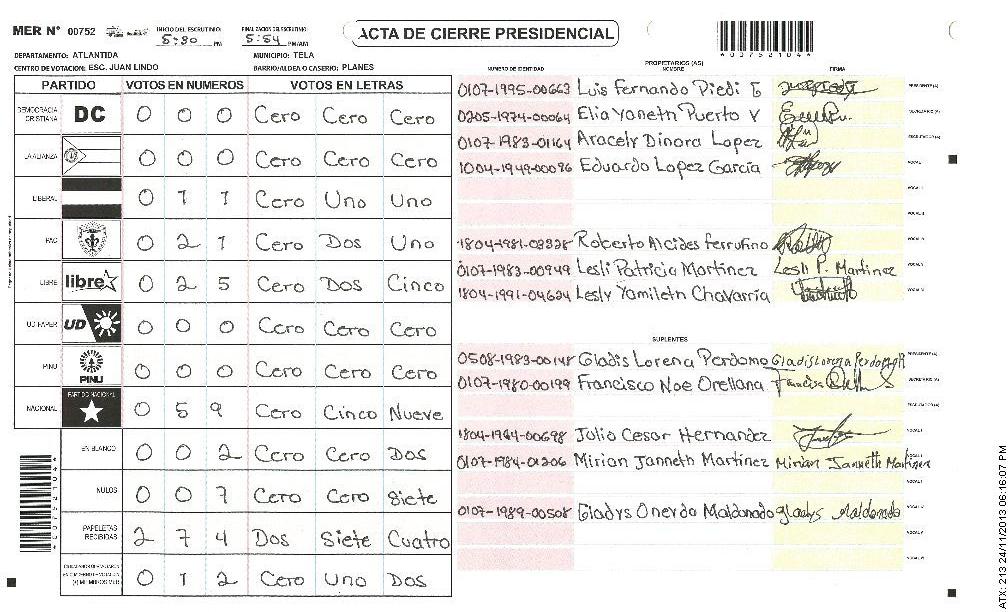 MER Nº 00752
INICIO DEL ESCRUTINIO: 5:30 PM
FINALIZACION DEL ESCRUTINIO: 5:54 PM/AM
ACTA DE CIERRE PRESIDENCIAL
A007521044
DEPARTAMENTO: ATLANTIDA
MUNICIPIO: TELA
CENTRO DE VOTACION: ESC. JUAN LINDO
BARRIO/ALDEA O CASERIO: PLANES
PARTIDO VOTOS EN NUMEROS VOTOS EN LETRAS
DEMOCRACIA CRISTIANA DC 0 0 0 Cero Cero Cero
LA ALIANZA 0 0 0 Cero Cero Cero
LIBERAL 0 1 1 Cero Uno Uno
PAC 0 2 1 Cero Dos Uno
LIBRE libre 0 2 5 Cero Dos Cinco
UD-FAPER UD 0 0 0 Cero Cero Cero
PINU PINU 0 0 0 Cero Cero Cero
NACIONAL PARTIDO NACIONAL 0 5 9 Cero Cinco Nueve
EN BLANCO 0 0 2 Cero Cero Dos
NULOS 0 0 7 Cero Cero Siete
PAPELETAS RECIBIDAS 2 7 4 Dos Siete Cuatro
0 1 2 Cero Uno Dos
PROPIETARIOS (AS)
NUMERO DE IDENTIDAD NOMBRE FIRMA
0107-1995-00663 Luis Fernando Piedi E PRESIDENTE (A)
0205-1974-00064 Elia Yaneth Puerto V SECRETARIO (A)
0107-1983-01164 Aracely Dinora Lopez ESCRUTADOR (A)
1004-1949-00096 Eduardo Lopez García VOCAL I
VOCAL II
VOCAL III
1804-1981-03328 Roberto Alcides Ferrufino VOCAL IV
0107-1983-00949 Lesli Patricia Martinez Lesli P. Martinez VOCAL V
1804-1991-04624 Lesly Yamileth Chavarría VOCAL VI
SUPLENTES
0508-1983-00148 Gladis Lorena Perdomo Gladis Lorena Perdomo PRESIDENTE (A)
0107-1980-00199 Francisco Noe Orellana SECRETARIO (A)
ESCRUTADOR (A)
1804-1964-00698 Julio Cesar Hernandez VOCAL I
0107-1984-01206 Mirian Janneth Martinez Mirian Janneth Martinez
0107-1989-00508 Gladys Oneyda Maldonado gladys Maldonado VOCAL IV
VOCAL V
VOCAL VI
ATX: 213 24/11/2013 06:16:07 PM